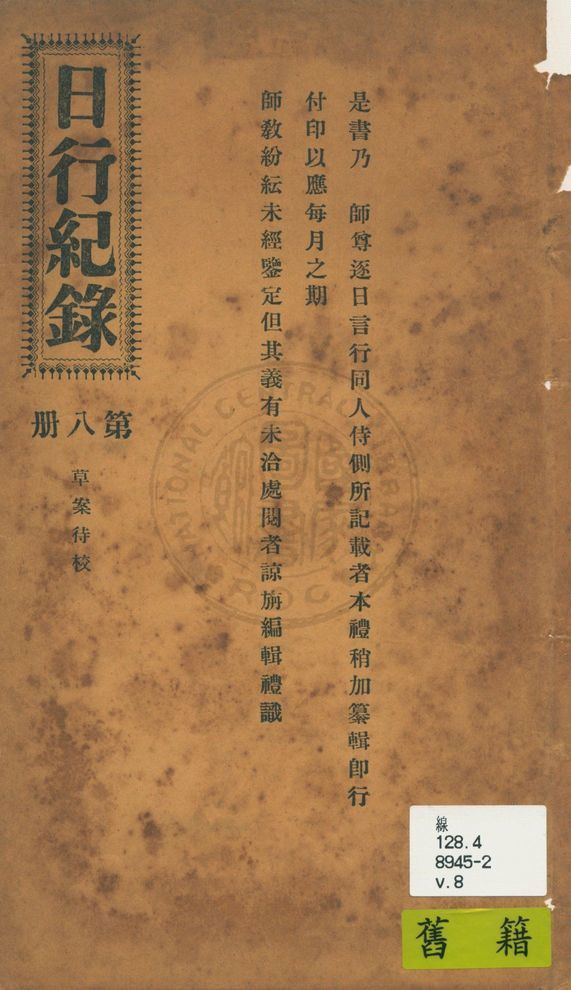 是書乃　師尊逐日言行同人侍側所記載者本禮稍加纂輯卽行
付印以應每月之期
師敎紛紜未經鑒定但其義有未洽處閱者諒旃編輯禮識
日行紀錄
第八册
草案待校
NATIONAL CENTRAL LIBRARY
R.O.C.
線
128.4
8945-2
v.8
舊籍